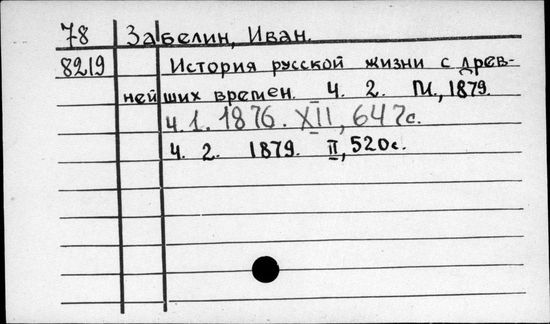 78 Забелин, Иван.
8219 История русской жизни с древ-
нейших времен. Ч. 2. М., 1879.
Ч. 1. 1876. XII, 647с.
Ч. 2. 1879. II, 520с.